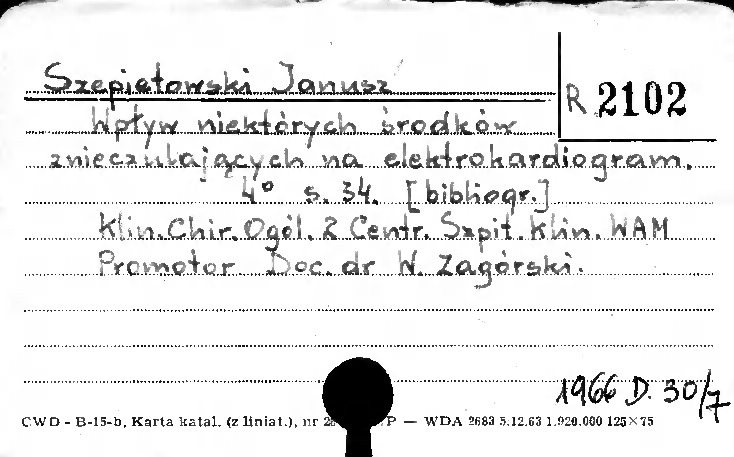 Szepiętowski Janusz
R 2102
Wpływ niektórych środków
znieczulających na elektrokardiogram.
4° s. 34. [bibliogr.]
Klin. Chir. Ogól. 2 Centr. Szpit. Klin. WAM
Promotor Doc. dr W. Zagórski.
1966 D. 30/7
CWD - B-15-b, Karta katal. (z liniat.), nr — WDA 2683 5.12.63 1.920.000 125×75